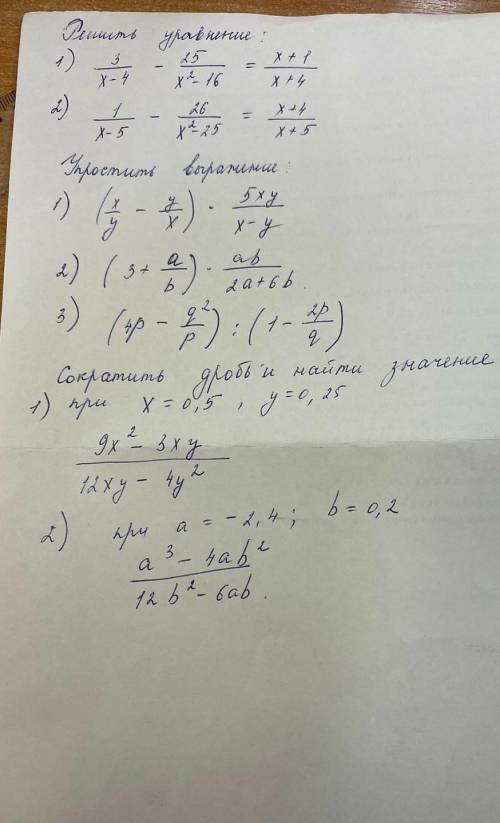 Решить уравнение:
1) 3/(x-4) - 25/(x²-16) = (x+1)/(x+4)
2) 1/(x-5) - 26/(x²-25) = (x+4)/(x+5)
Упростить выражение:
1) (x/y - y/x) · 5xy/(x-y)
2) (3 + a/b) · ab/(2a+6b).
3) (4p - q²/p) : (1 - 2p/q)
Сократить дробь и найти значение
1) при x = 0,5 , y = 0,25
(9x² - 3xy)/(12xy - 4y²)
2) при a = -2,4; b = 0,2
(a³ - 4ab²)/(12b² - 6ab).